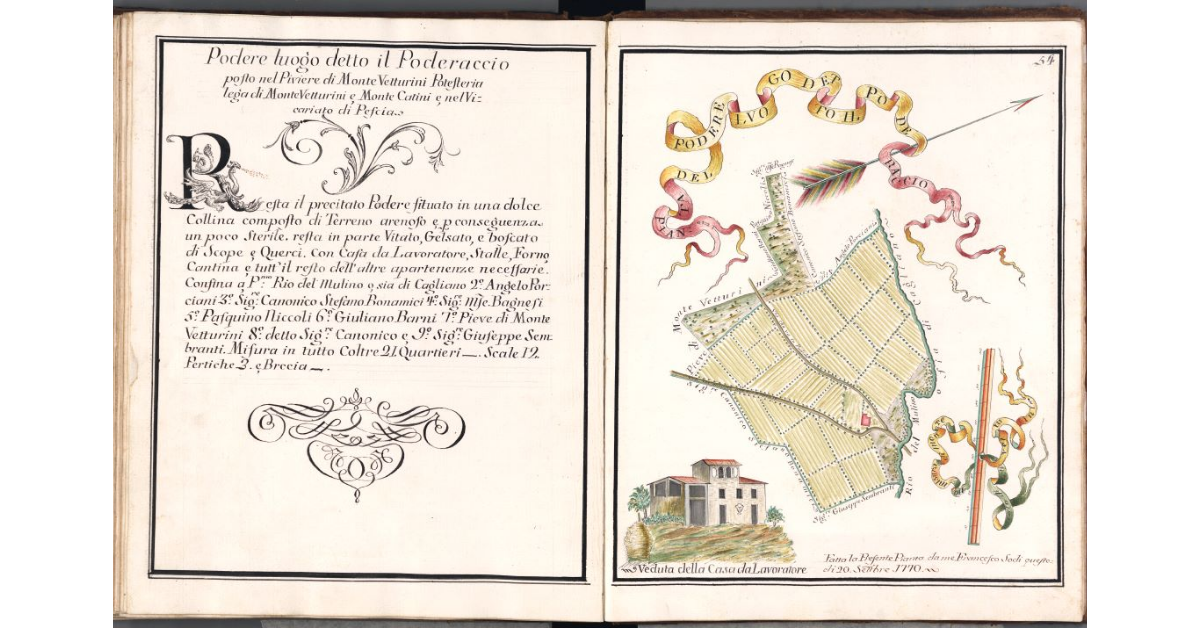 Podere luogo detto il Poderaccio
posto nel Piviere di Monte Vetturini Potesteria
lega di Monte Vetturini e Monte Catini e nel Vi-
cariato di Pescia.
Resta il precitato Podere situato in una dolce
Collina composto di Terreno arenoso e p conseguenza
un poco Sterile. resta in parte Vitato, Gelsato, e boscato
di Scope e Querci. Con Casa da Lavoratore, Stalle, Forno
Cantina e tutt'il resto dell'altre apartenenze necessarie.
Confina a P.mo Rio del Mulino o sia di Cagliano 2.º Angelo Por-
ciani 3.º Sig.re Canonico Stefano Bonamici 4.º Sig.re Bagnesi
5.º Pasquino Niccoli 6.º Giuliano Barni 7.º Pieve di Monte
Vetturini 8.º detto Sig.re Canonico e 9.º Sig.re Giuseppe Sem-
branti. Misura in tutto Coltre 21 Quartieri —. Scale 12.
Pertiche 3. e Braccia —.
54
PIANTA DEL PODERE LUOGO DETTO IL PODERACCIO
Pieve di Monte Vetturini
Pasquino Niccoli
Angelo Porciani
Rio del Mulino o sia di Cagliano
Sig.re Canonico Stefano Bonamici
Sig.re Giuseppe Sembranti
Veduta della Casa da Lavoratore
Fatta la Presente Pianta da me Francesco Sodi questo
di 20. Settbre 1770.